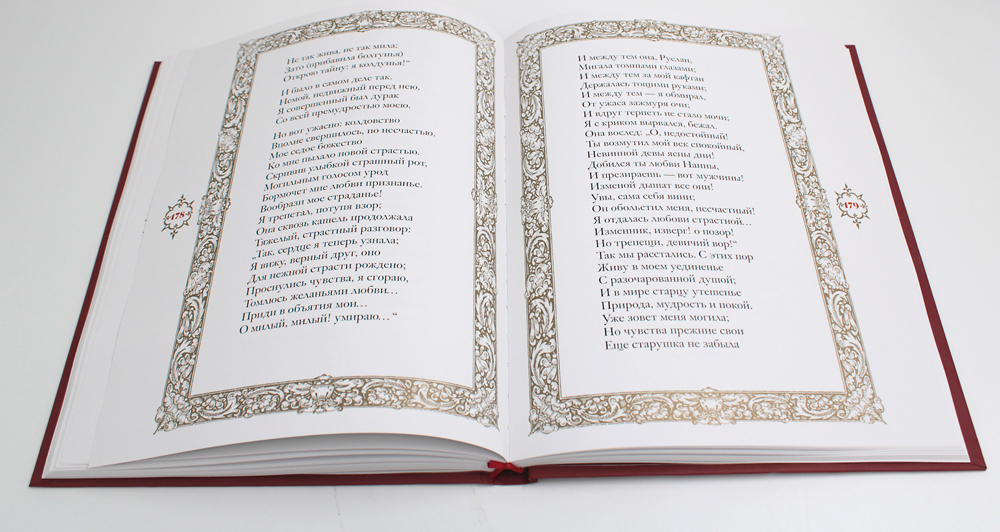 Не так жива, не так мила;
Зато (прибавила болтунья)
Открою тайну: я колдунья!“
И было в самом деле так.
Немой, недвижный перед нею,
Я совершенный был дурак
Со всей премудростью моею.
Но вот ужасно: колдовство
Вполне свершилось, по несчастью.
Мое седое божество
Ко мне пылало новой страстью.
Скривив улыбкой страшный рот,
Могильным голосом урод
Бормочет мне любви признанье.
Вообрази мое страданье!
Я трепетал, потупя взор;
Она сквозь кашель продолжала
Тяжелый, страстный разговор:
„Так, сердце я теперь узнала;
Я вижу, верный друг, оно
Для нежной страсти рождено;
Проснулись чувства, я сгораю,
Томлюсь желаньями любви…
Приди в объятия мои…
О милый, милый! умираю…“
178
И между тем она, Руслан,
Мигала томными глазами;
И между тем за мой кафтан
Держалась тощими руками;
И между тем — я обмирал,
От ужаса зажмуря очи;
И вдруг терпеть не стало мочи;
Я с криком вырвался, бежал.
Она вослед: „О, недостойный!
Ты возмутил мой век спокойный,
Невинной девы ясны дни!
Добился ты любви Наины,
И презираешь — вот мужчины!
Изменой дышат все они!
Увы, сама себя вини;
Он обольстил меня, несчастный!
Я отдалась любови страстной…
Изменник, изверг! о позор!
Но трепещи, девичий вор!“
Так мы расстались. С этих пор
Живу в моем уединенье
С разочарованной душой;
И в мире старцу утешенье
Природа, мудрость и покой.
Уже зовет меня могила;
Но чувства прежние свои
Еще старушка не забыла
179